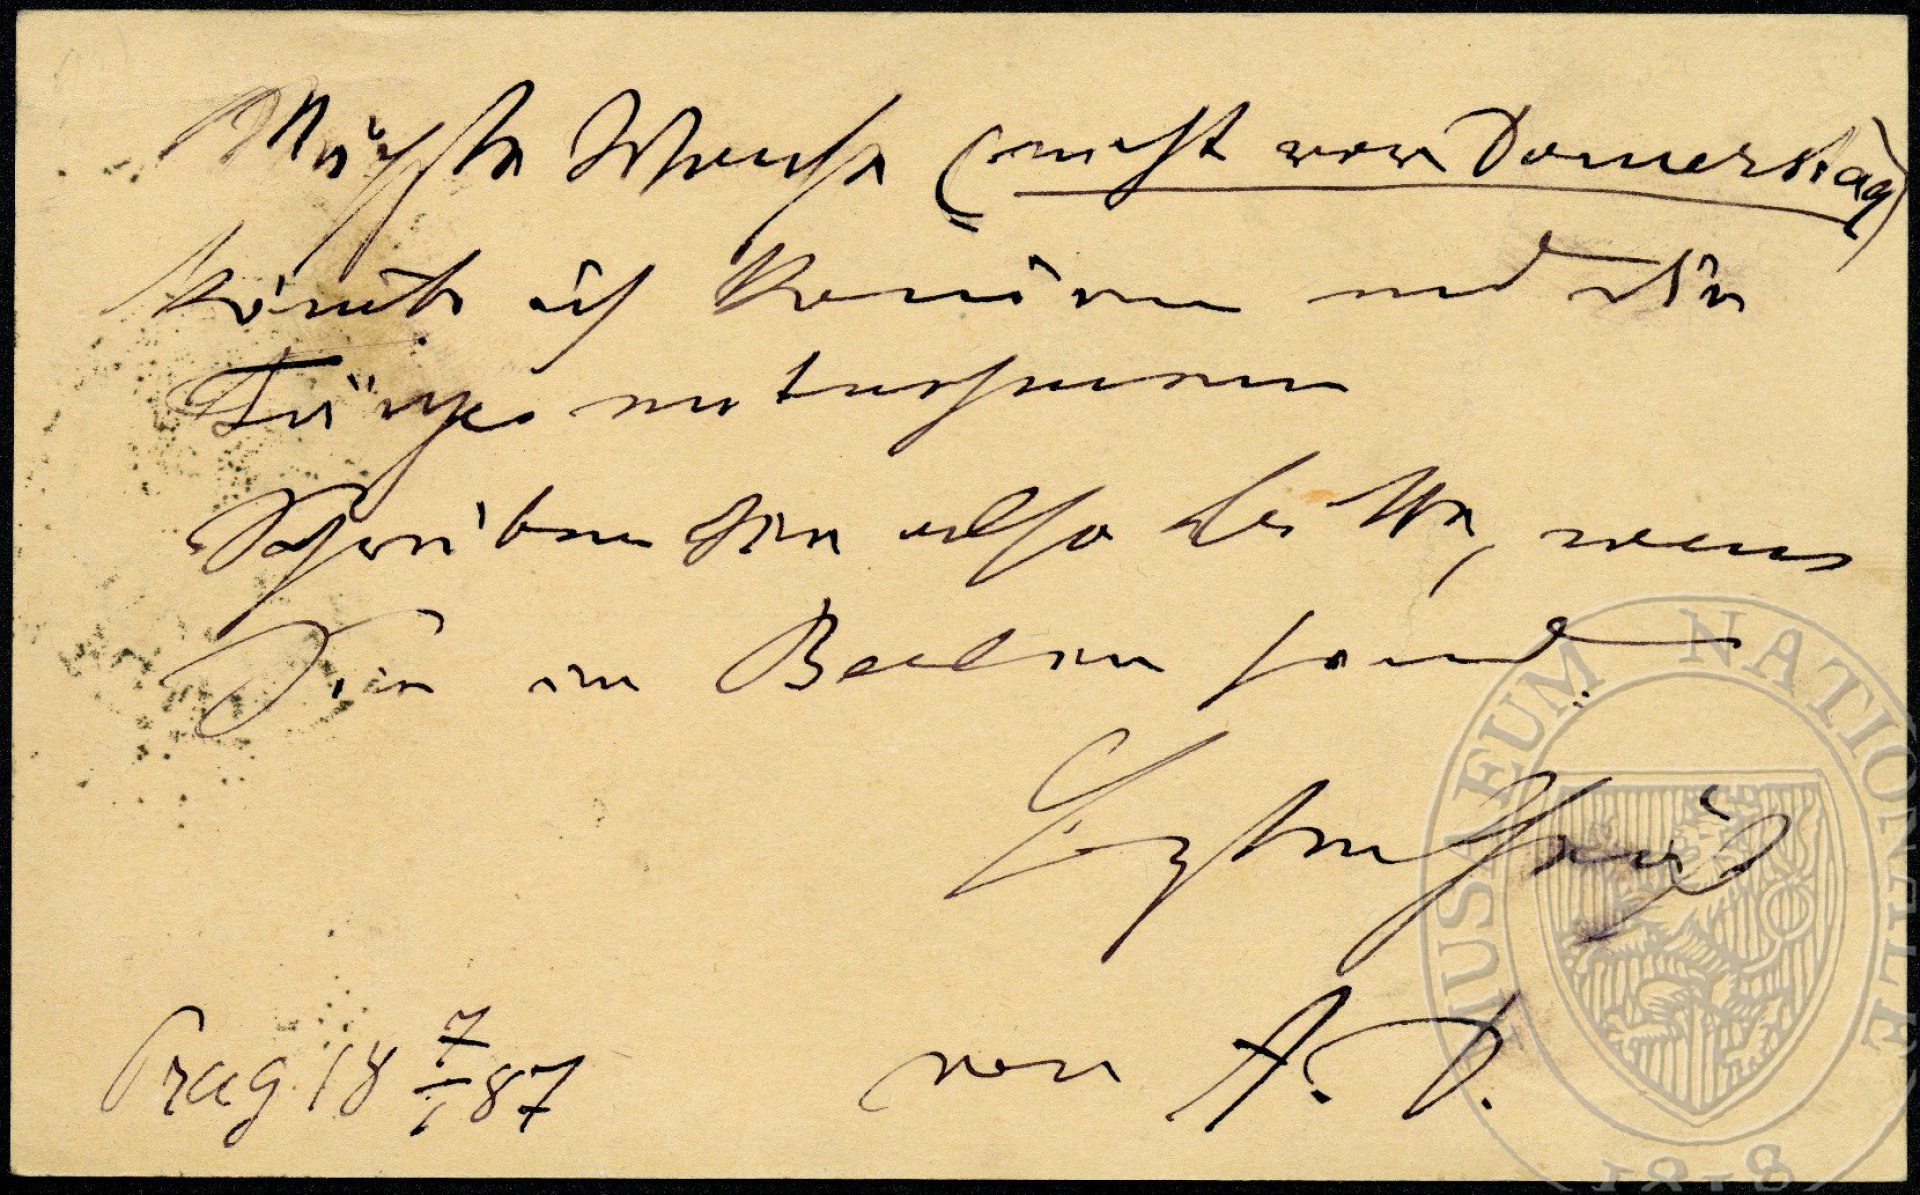 Nächste Woche (nicht vor Donnerstag)
könnte ich kommen und die
Tänze mitnehmen
Schreiben Sie also bitte, wenn
Sie in Berlin sind
Ergebenst
von A. D.
Prag 18 7/1 87
MUSAEUM NATIONALE
1818